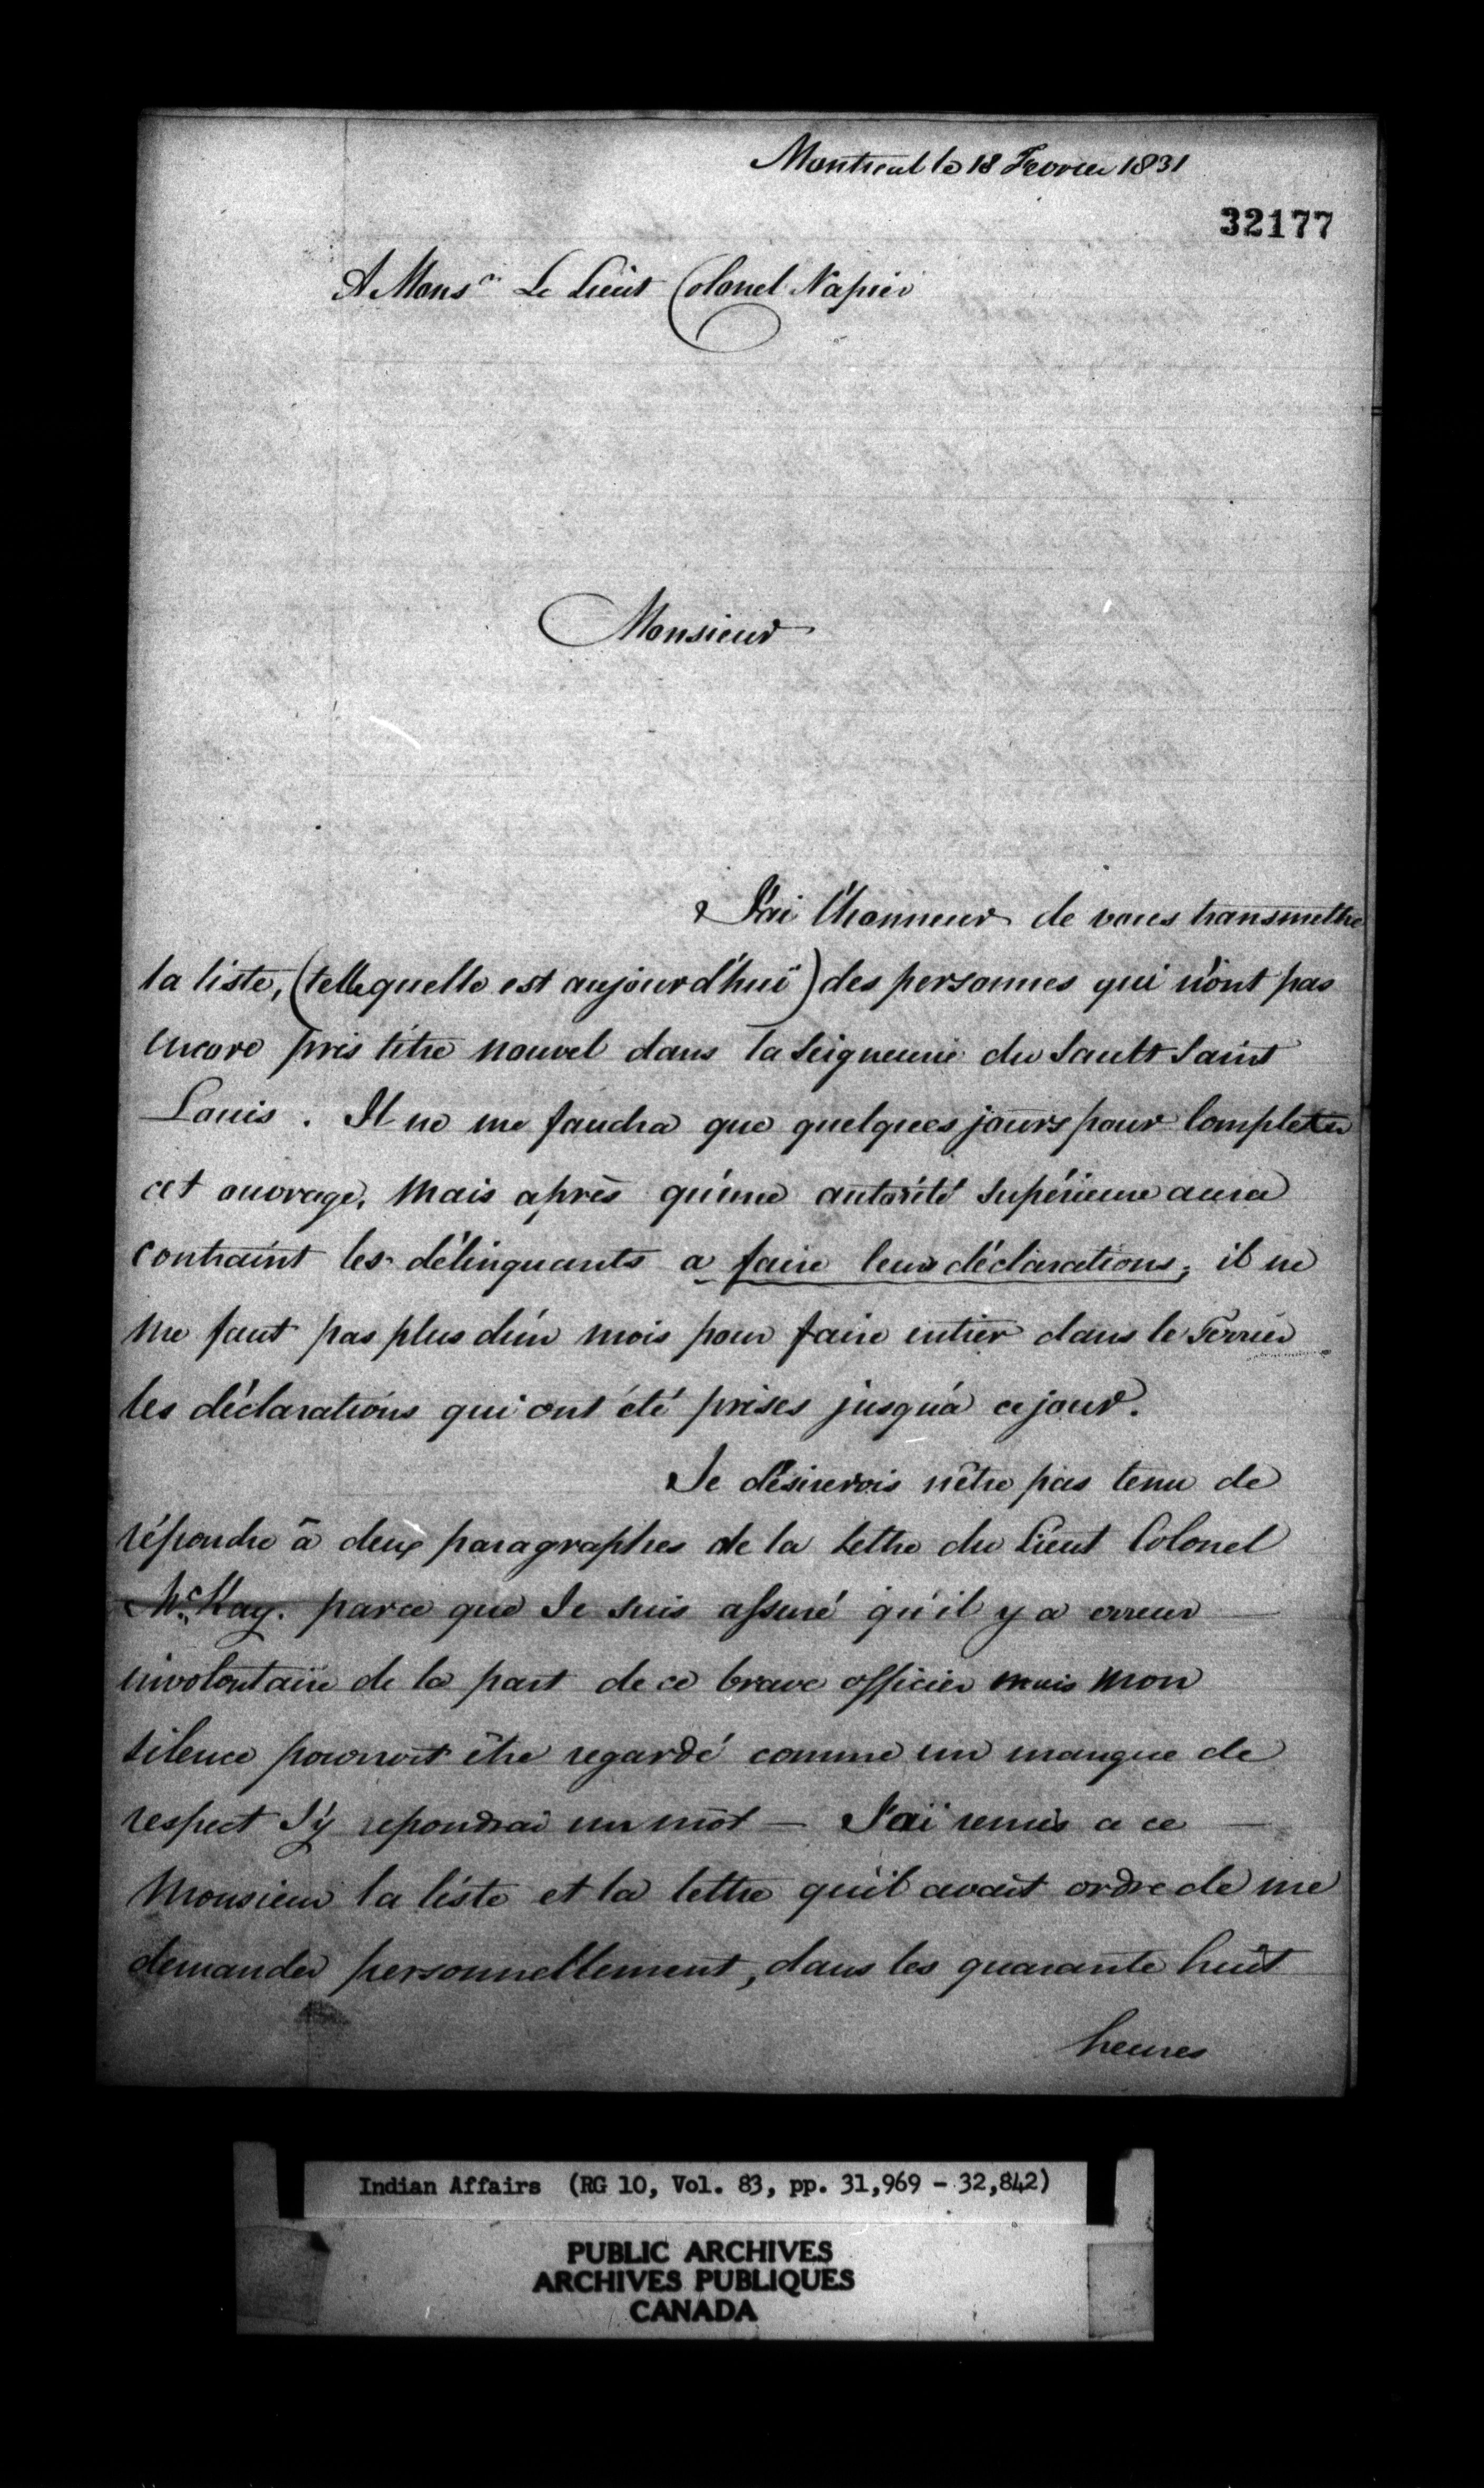 Montreal le 18 Fevrier 1831
32177
A Monsr Le Lieut Colonel Napier
Monsieur
J'ai l'honneur de vous transmettre
la liste, (telle quelle est aujourd'hui) des personnes qui n'ont pas
encore pris titre nouvel dans la Seigneurie du Sault Saint
Louis. Il ne me faudra que quelques jours pour completer
cet ouvrage, mais après qu'une autorité supérieure aura
contraint les délinquants a faire leurs déclarations; il ne
me faut pas plus d'un mois pour faire entrer dans le Terrier
les déclarations qui ont été prises jusqu'à ce jour.
Je désirerois n'être pas tenu de
répondre à deux paragraphes de la Lettre du Lieut Colonel
McKay. parce que Je suis assuré qu'il y a erreur
involontaire de la part de ce brave officier mais mon
silence pourroit être regardé comme un manque de
respect J'y repondrai un mot — J'ai remis a ce —
Monsieur la liste et la lettre qu'il avait ordre de me
demander personnellement, dans les quarante huit
heures
Indian Affairs (RG 10, Vol. 83, pp. 31,969 - 32,842)
PUBLIC ARCHIVES
ARCHIVES PUBLIQUES
CANADA